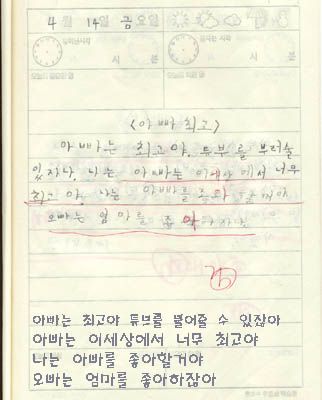 4월 14일 금요일
일어난시각
시 분
시 분
<아빠 최고>
아빠는 최고야. 튜부를 부러술
있자나. 나는. 아빠는 이세상에서 너무
최고야. 나는 아빠를 좋와
오빠는 엄마를 좋 자나.
아빠는 최고야 튜브를 불어줄 수 있잖아
아빠는 이세상에서 너무 최고야
나는 아빠를 좋아할거야
오빠는 엄마를 좋아하잖아